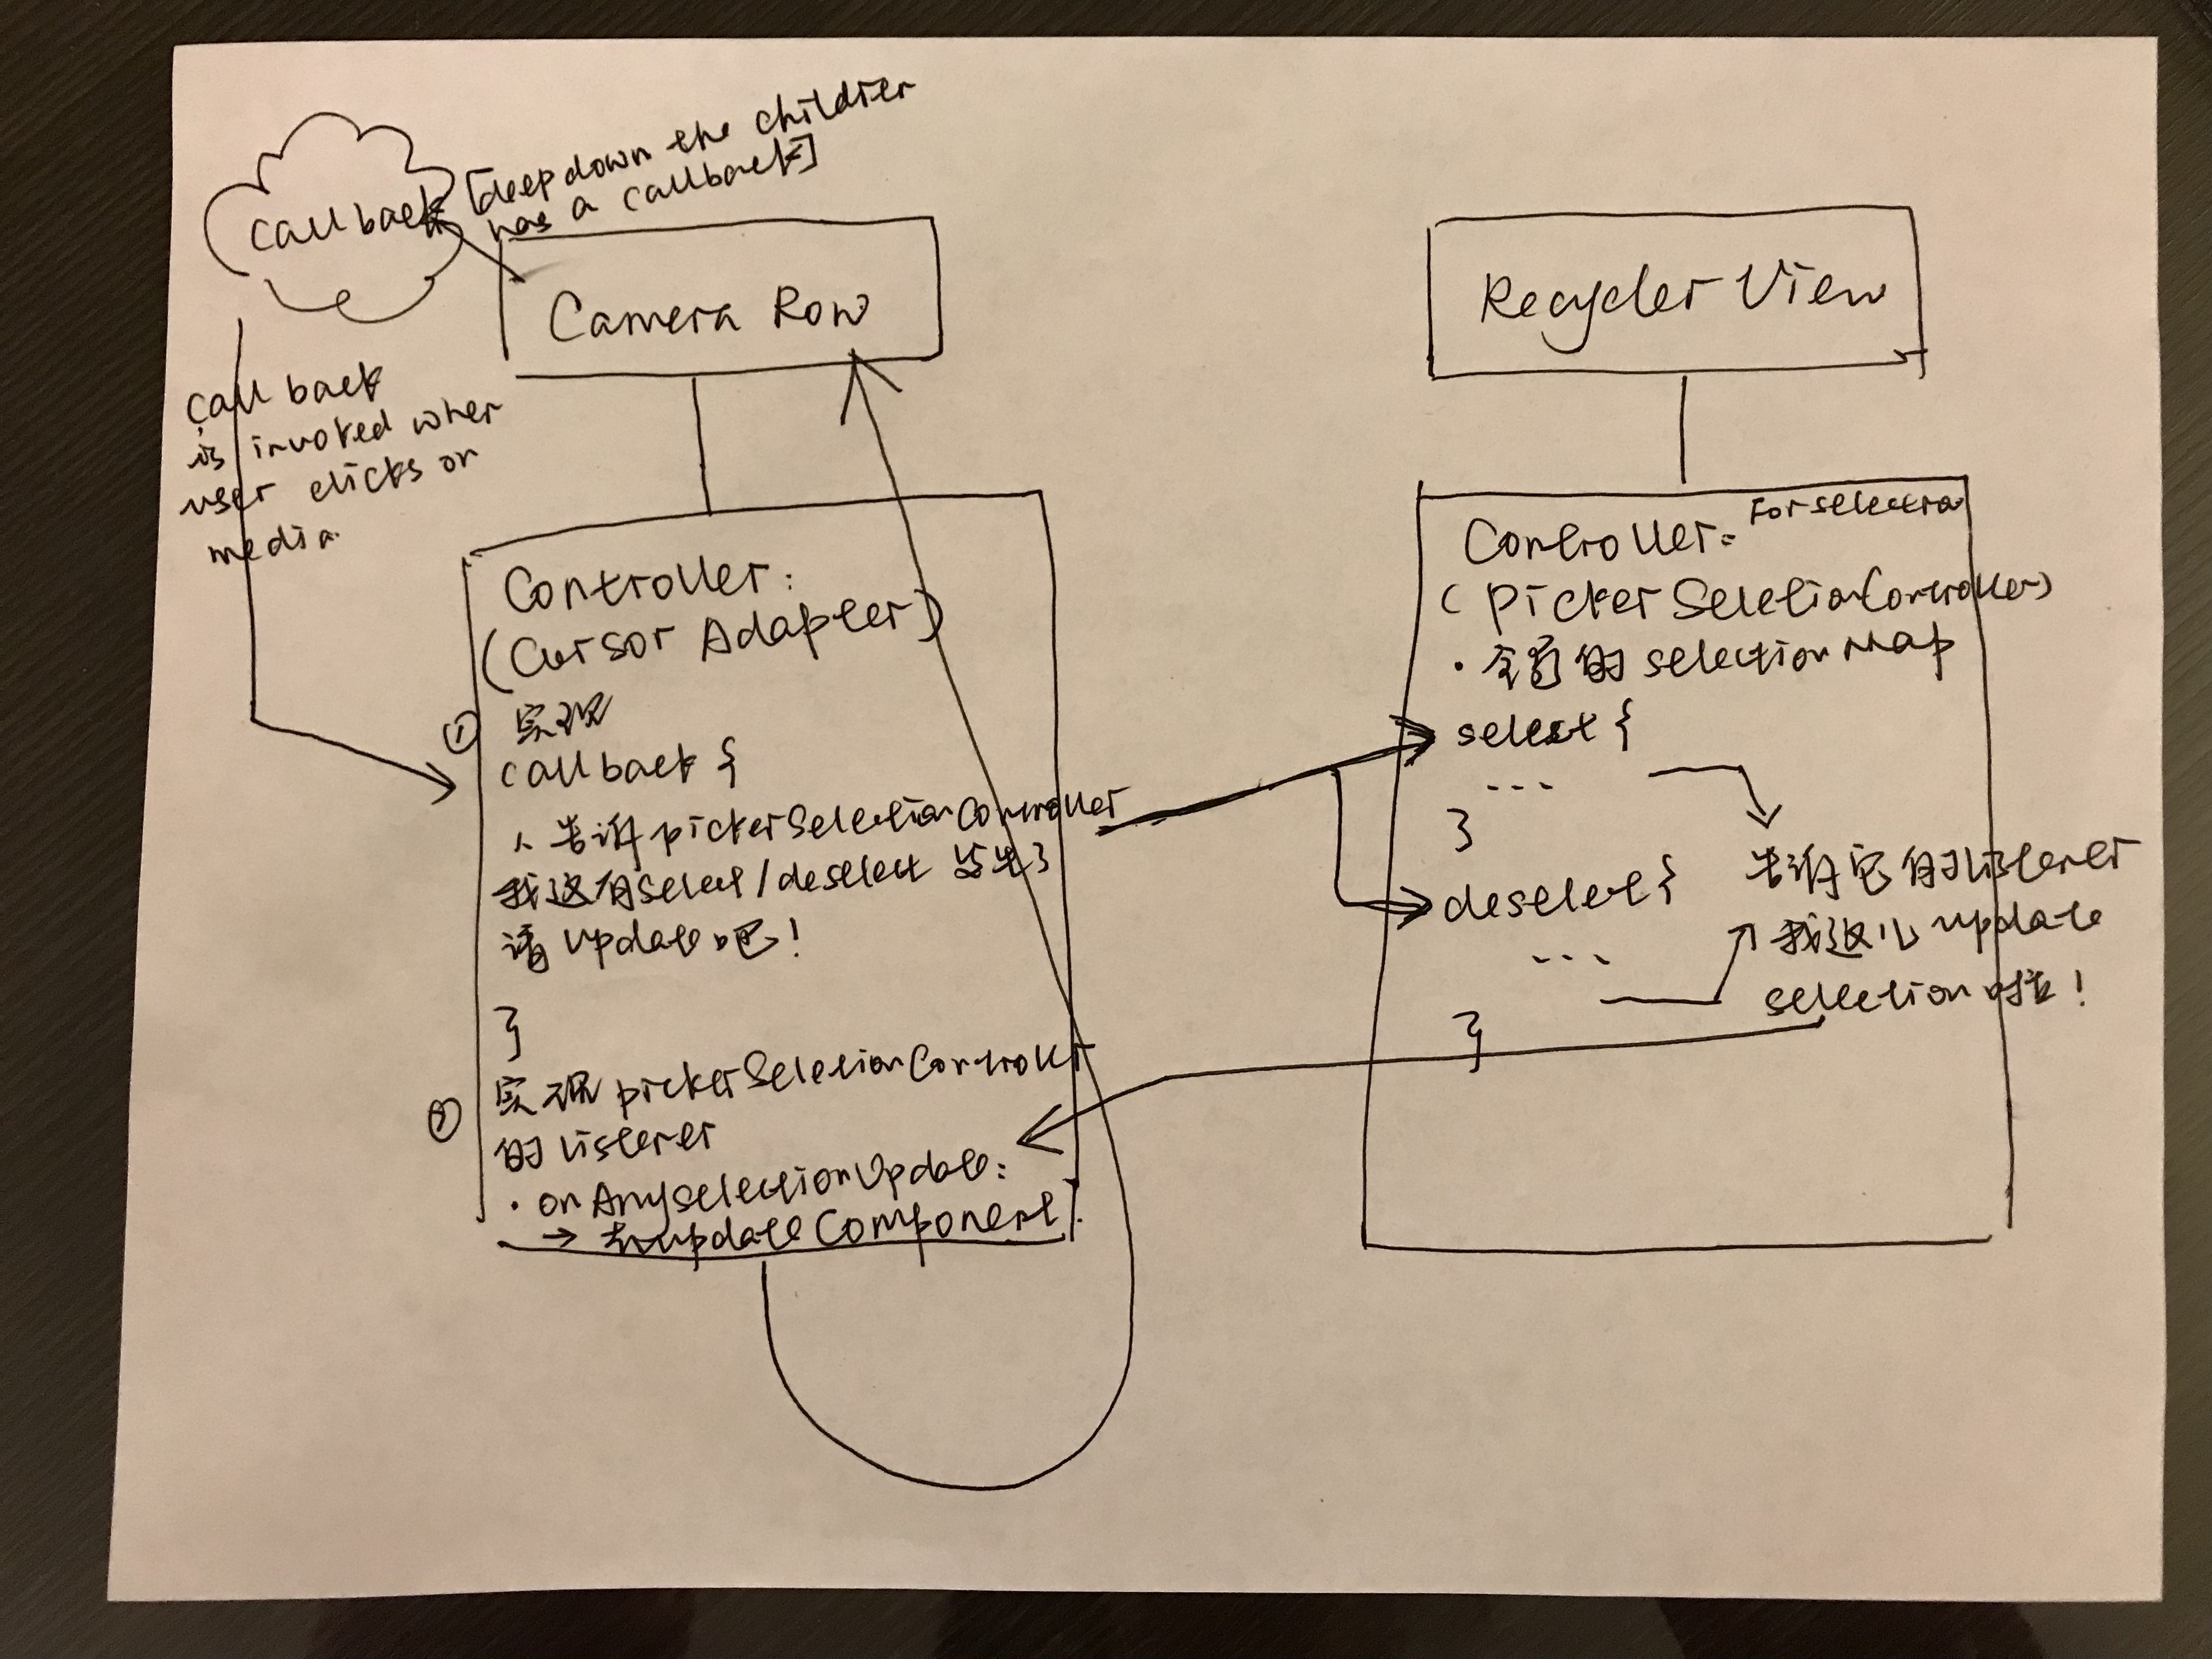 [deep down the childrer
has a callback]
callback
Camera Row
Recycler View
callback
is invoked when
user clicks on
media.
Controller:
(Cursor Adapter)
① 实现
callback {
告诉 pickerSelectionController
我这有 select / deselect 发生了
请 update 吧！
}
② 实现 pickerSeletionController
的 listener
· onAnySelectionUpdate:
→ updateComponent
Controller: For selection
(PickerSeletionController)
· 全局的 selectionMap
select {
...
}
deselect {
...
}
告诉它的 listener
我这儿 update
selection 啦！